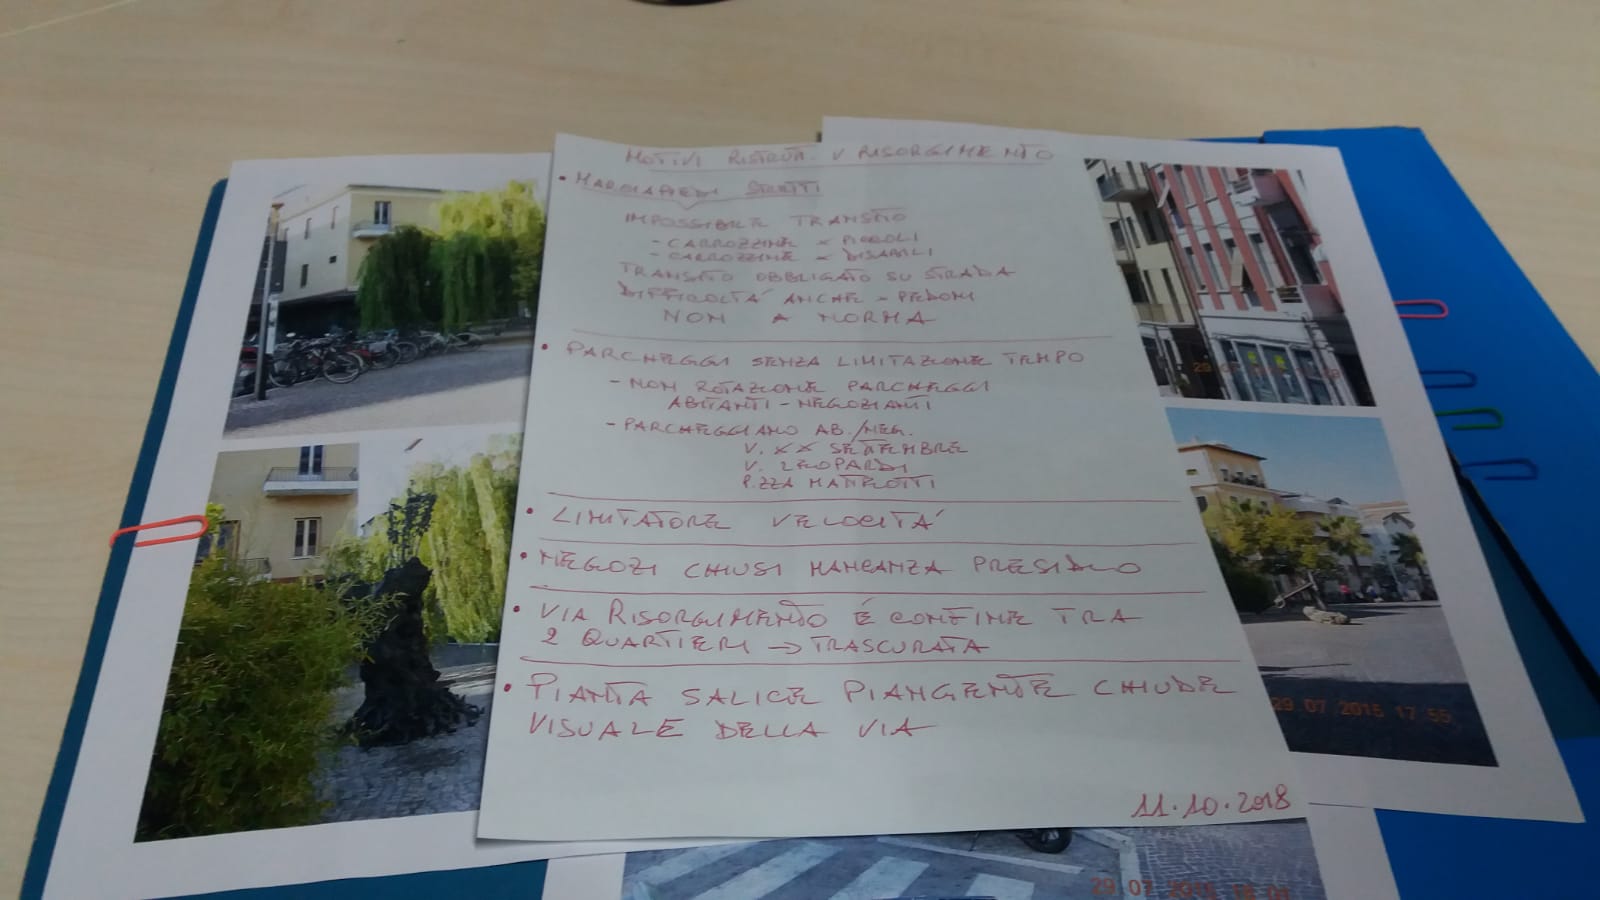 MOTIVI RISTRUT. V RISORGIMENTO
• MARCIAPIEDI STRETTI
IMPOSSIBILE TRANSITO
- CARROZZINE x PICCOLI
- CARROZZINE x DISABILI
TRANSITO OBBLIGATO SU STRADA
DIFFICOLTÁ ANCHE x PEDONI
NON A NORMA
• PARCHEGGI SENZA LIMITAZIONE TEMPO
- NON ROTAZIONE PARCHEGGI
ABITANTI - NEGOZIANTI
- PARCHEGGIANO AB./NEG.
V. XX SETTEMBRE
V. LEOPARDI
P.ZZA MATTEOTTI
• LIMITATORE VELOCITÁ
• NEGOZI CHIUSI MANCANZA PRESIDIO
• VIA RISORGIMENTO É CONFINE TRA
2 QUARTIERI → TRASCURATA
• PIANTA SALICE PIANGENTE CHIUDE
VISUALE DELLA VIA
11.10.2018
29 07 2015 17 55
29 07 2015 18 01